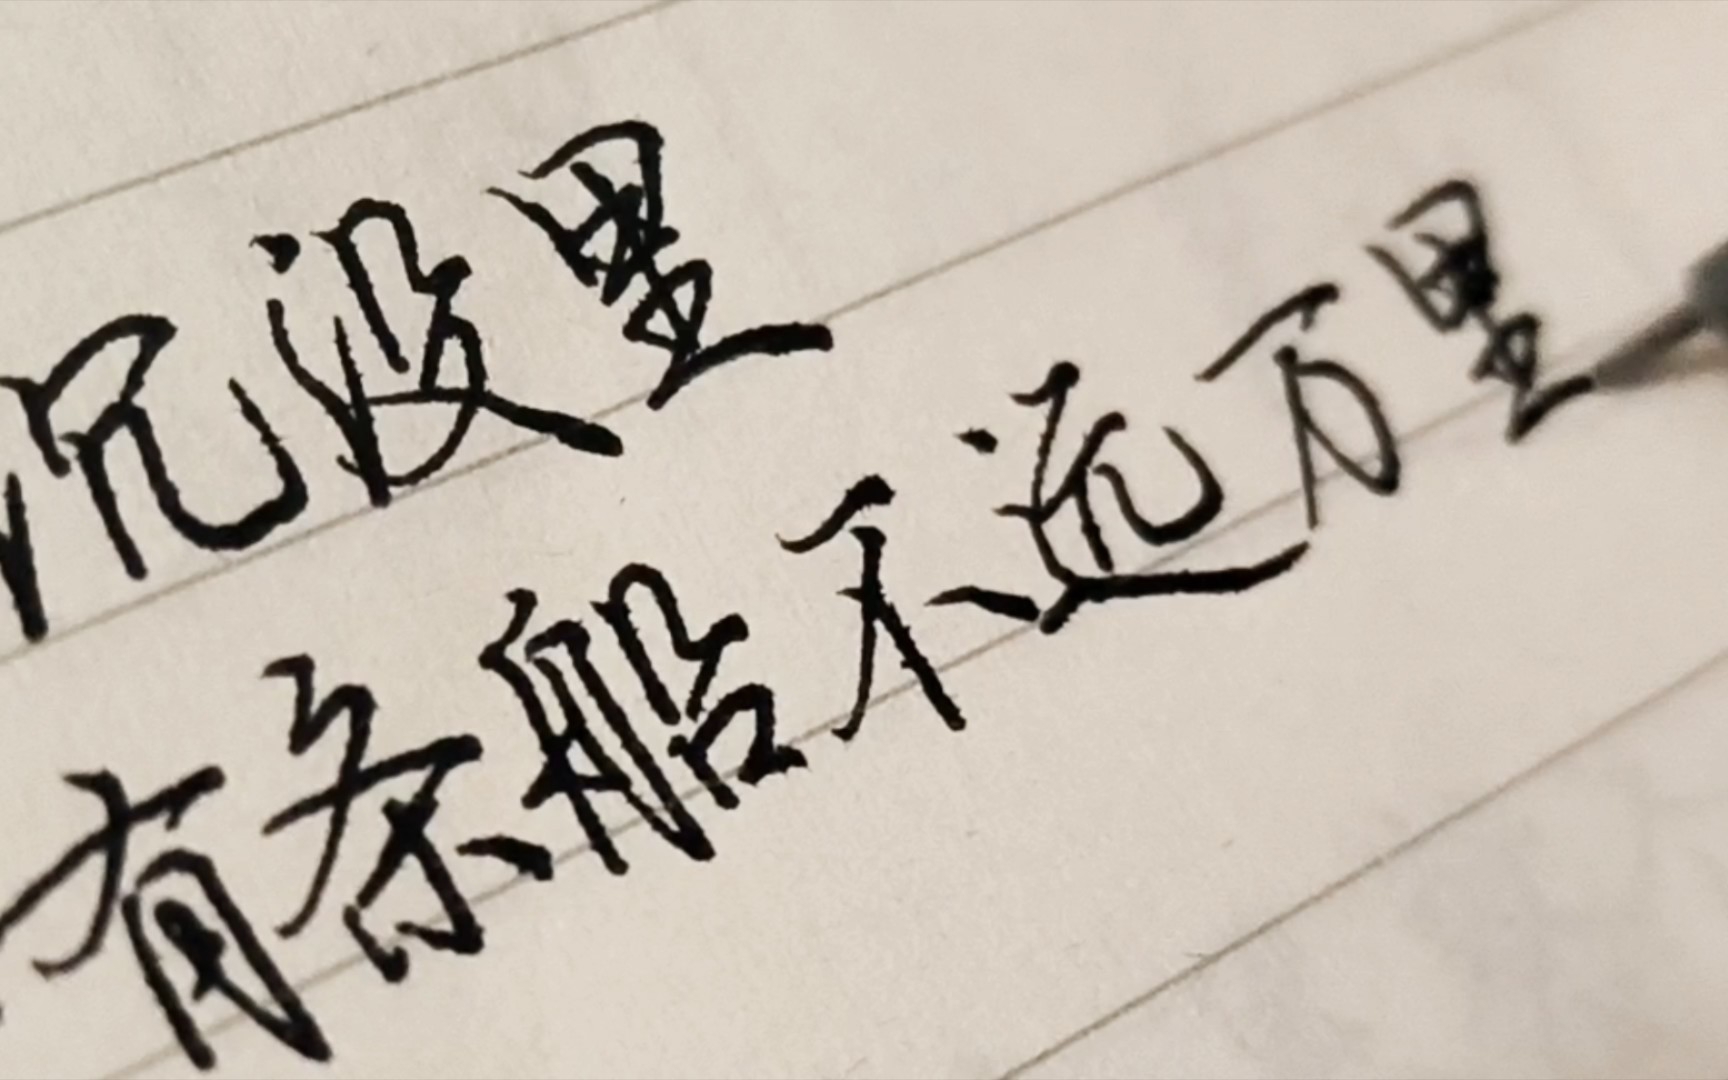 沉没里
有条船不远万里